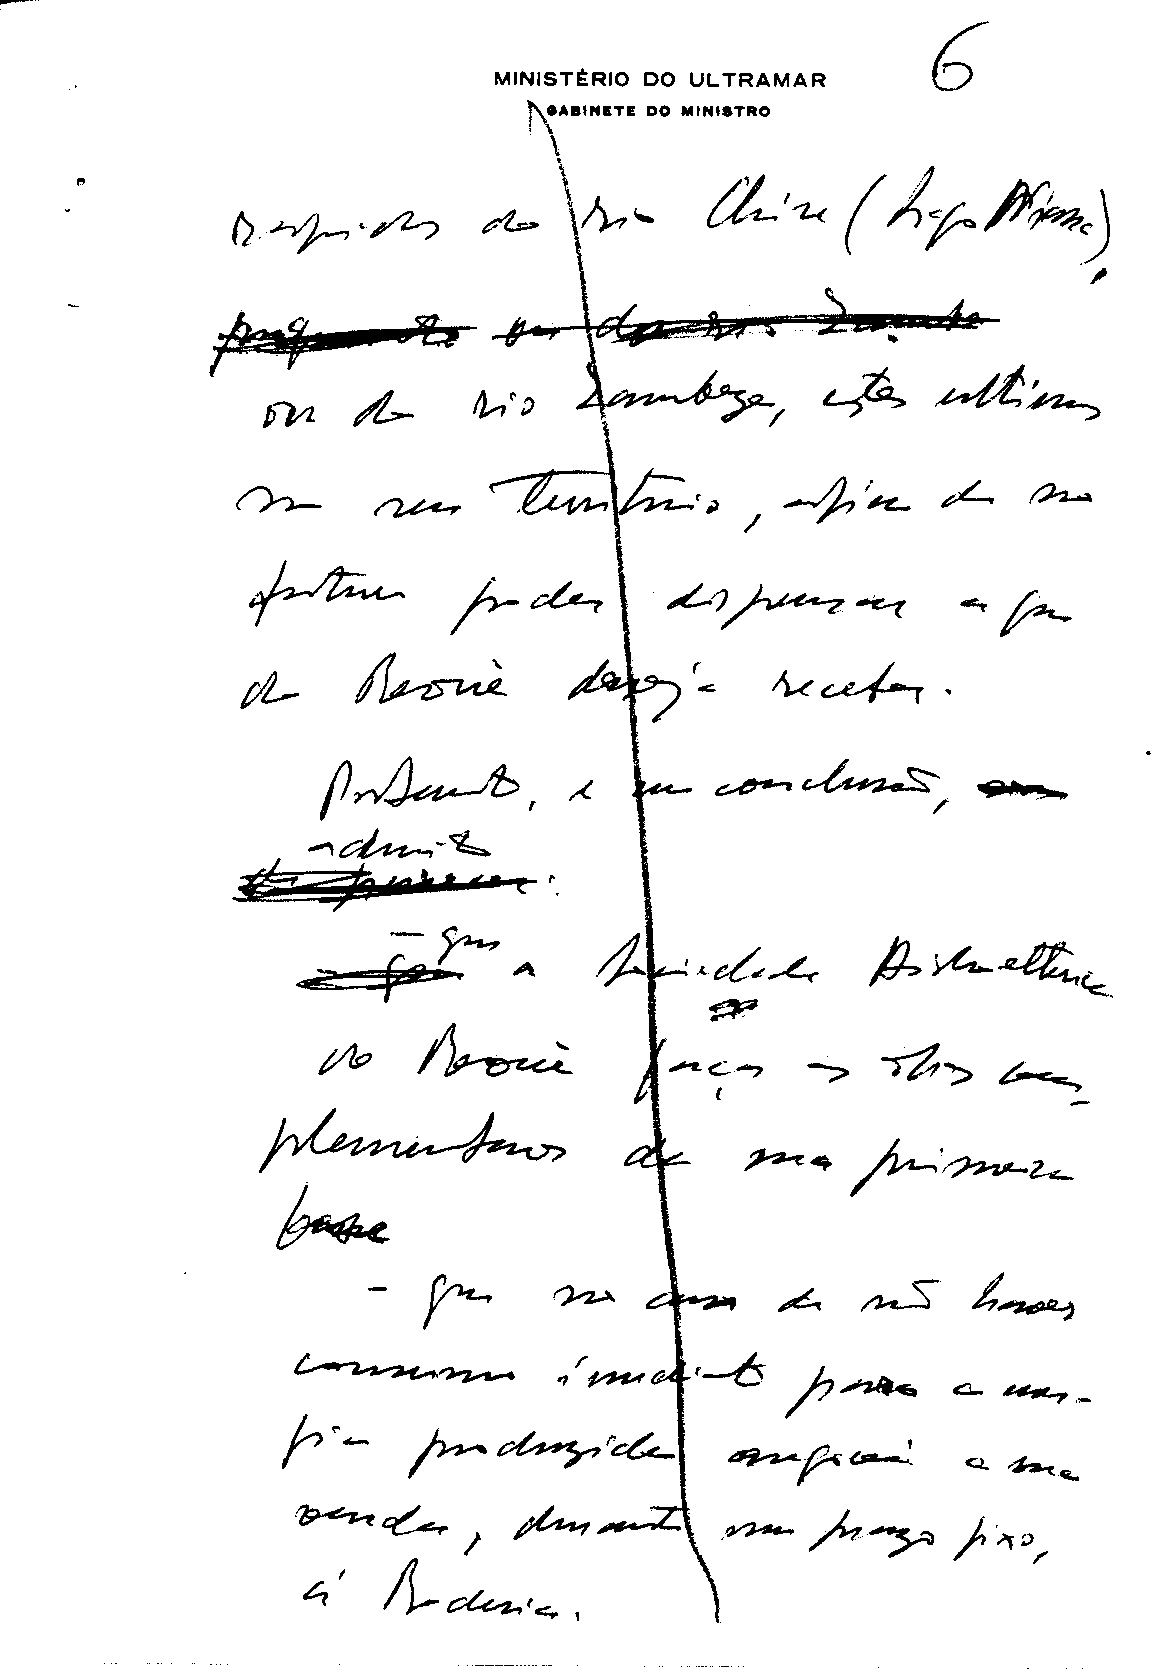 6
MINISTÉRIO DO ULTRAMAR
GABINETE DO MINISTRO
do rio Chire (Lago Niassa),
ou do rio Zambeze, estes ultimos
no seu Território, afim de no
futuro poder dispensar a que
do Revuè deseja receber.
Portanto, e em conclusão,
admito
- que
a Sociedade Hidroelétrica
do Revuè faça as obras com-
plementares da sua primeira
fase
- que no caso de não haver
consumo imediato para a ener-
gia produzida negoceie a sua
venda, durante um prazo fixo,
á Rodesia.